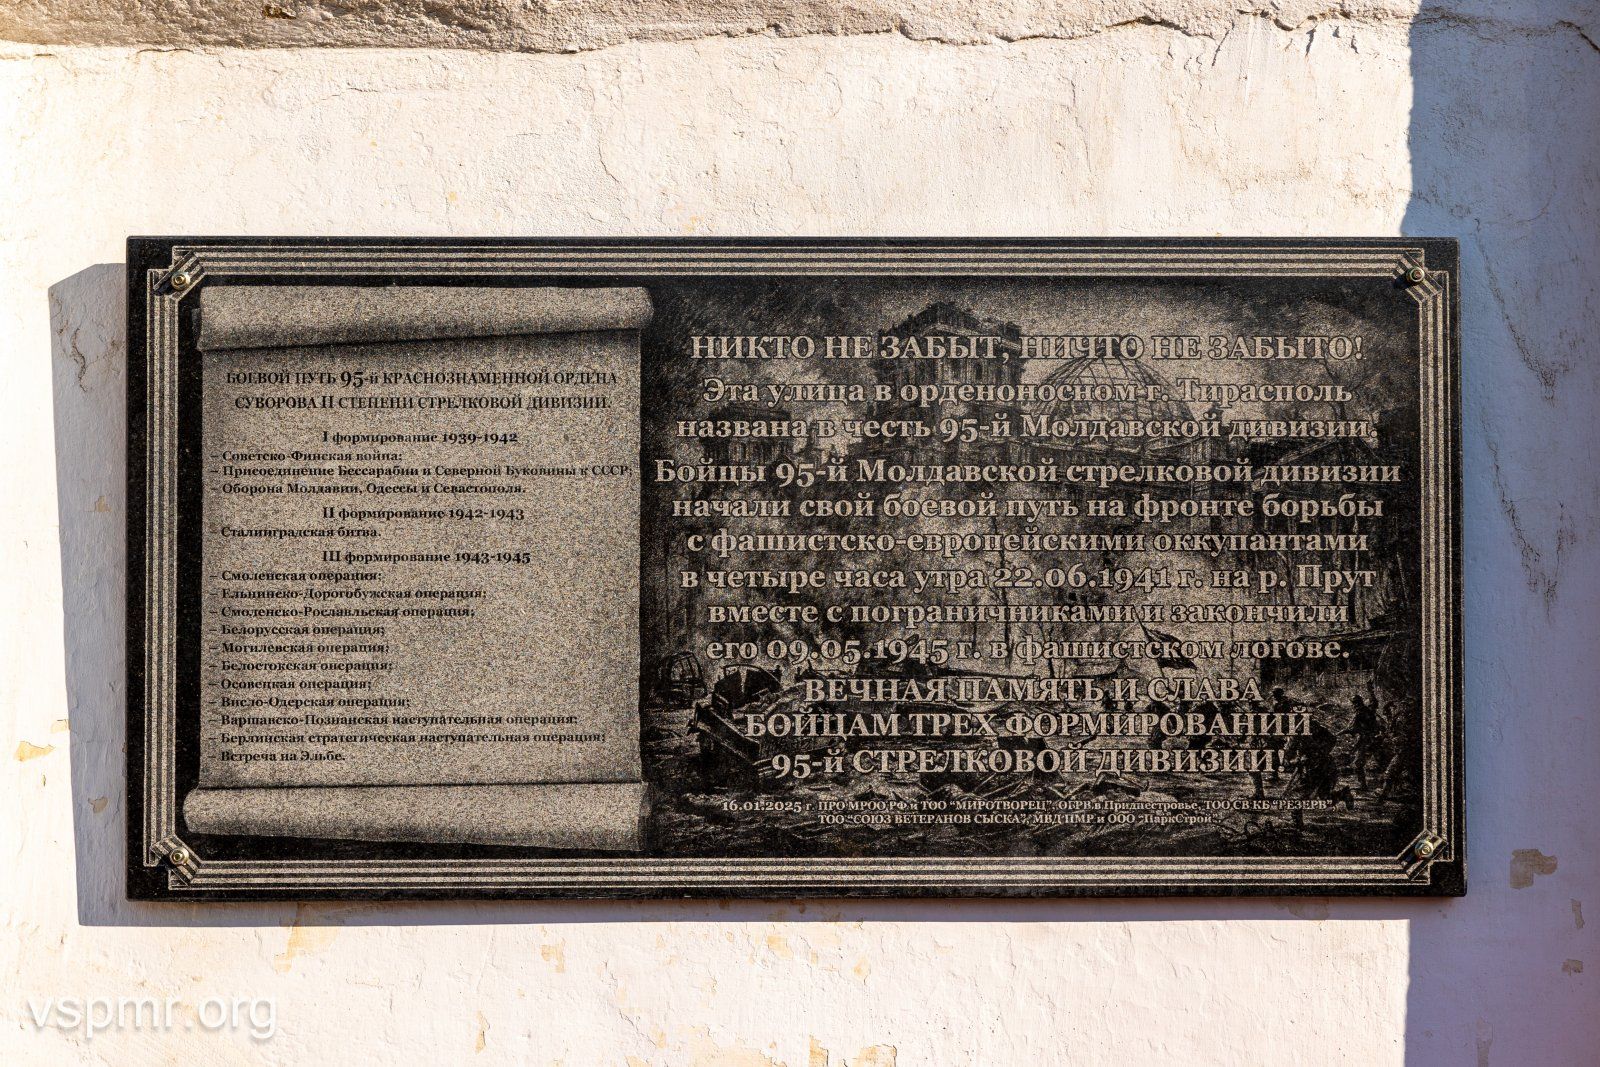 БОЕВОЙ ПУТЬ 95-й КРАСНОЗНАМЕННОЙ ОРДЕНА
СУВОРОВА II СТЕПЕНИ СТРЕЛКОВОЙ ДИВИЗИИ.
I формирование 1939-1942
– Советско-Финская война;
– Присоединение Бессарабии и Северной Буковины к СССР;
– Оборона Молдавии, Одессы и Севастополя.
II формирование 1942-1943
Сталинградская битва.
III формирование 1943-1945
– Смоленская операция;
– Ельнинско-Дорогобужская операция;
– Смоленско-Рославльская операция;
– Белорусская операция;
– Могилевская операция;
– Белостокская операция;
– Осовецкая операция;
– Висло-Одерская операция;
– Варшавско-Познанская наступательная операция;
– Берлинская стратегическая наступательная операция;
Встреча на Эльбе.
НИКТО НЕ ЗАБЫТ, НИЧТО НЕ ЗАБЫТО!
Эта улица в орденоносном г. Тирасполь
названа в честь 95-й Молдавской дивизии.
Бойцы 95-й Молдавской стрелковой дивизии
начали свой боевой путь на фронте борьбы
с фашистско-европейскими оккупантами
в четыре часа утра 22.06.1941 г. на р. Прут
вместе с пограничниками и закончили
его 09.05.1945 г. в фашистском логове.
ВЕЧНАЯ ПАМЯТЬ И СЛАВА
БОЙЦАМ ТРЕХ ФОРМИРОВАНИЙ
95-й СТРЕЛКОВОЙ ДИВИЗИИ!
16.01.2025 г. ПРО МРОО РФ и ТОО "МИРОТВОРЕЦ", ОГРВ в Приднестровье, ТОО СВ КБ "РЕЗЕРВ",
ТОО "СОЮЗ ВЕТЕРАНОВ СЫСКА", МВД ПМР и ООО "ПаркСтрой".
vspmr.org